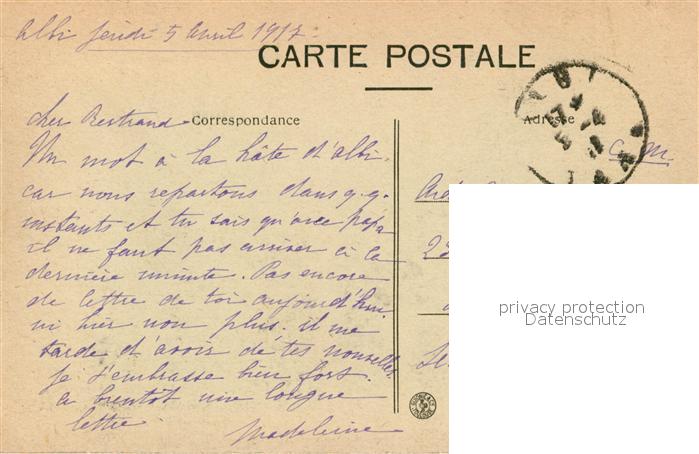 Albi Jeudi 5 avril 1917.
CARTE POSTALE
Correspondance
Adresse
cher Bertrand
Un mot à la hâte d'albi.
car nous repartons dans q.q.
instants et tu sais qu'avec papa
il ne faut pas arriver à la
dernière minute. Pas encore
de lettre de toi aujourd'hui
ni hier non plus. il me
tarde d'avoir de tes nouvelles.
je t'embrasse bien fort.
a bientôt une longue
lettre.
Madeleine
privacy protection
Datenschutz